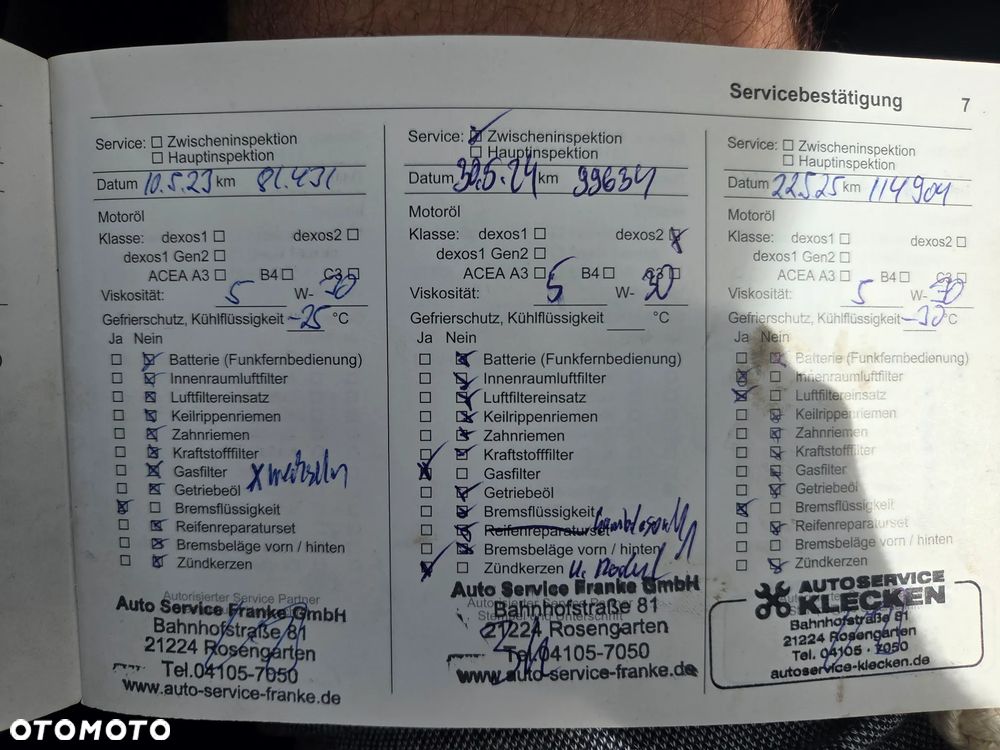 Servicebestätigung 7
Service: Zwischeninspektion
Hauptinspektion
Datum 10.5.23 km 81.431
Motoröl
Klasse: dexos1 dexos2
dexos1 Gen2
ACEA A3 B4 C3
Viskosität: 5 W- 30
Gefrierschutz, Kühlflüssigkeit -25 °C
Ja Nein
Batterie (Funkfernbedienung)
Innenraumluftfilter
Luftfiltereinsatz
Keilrippenriemen
Zahnriemen
Kraftstofffilter
Gasfilter
Getriebeöl
Bremsflüssigkeit
Reifenreparaturset
Bremsbeläge vorn / hinten
Zündkerzen
Autorisierter Service Partner
Auto Service Franke GmbH
Bahnhofstraße 81
21224 Rosengarten
Tel.04105-7050
www.auto-service-franke.de
Service: Zwischeninspektion
Hauptinspektion
Datum 30.5.24 km 99634
Motoröl
Klasse: dexos1 dexos2
dexos1 Gen2
ACEA A3 B4 C3
Viskosität: 5 W- 30
Gefrierschutz, Kühlflüssigkeit °C
Ja Nein
Batterie (Funkfernbedienung)
Innenraumluftfilter
Luftfiltereinsatz
Keilrippenriemen
Zahnriemen
Kraftstofffilter
Gasfilter
Getriebeöl
Bremsflüssigkeit
Reifenreparaturset
Bremsbeläge vorn / hinten
Zündkerzen
Auto Service Franke GmbH
Bahnhofstraße 81
21224 Rosengarten
Tel.04105-7050
www.auto-service-franke.de
Service: Zwischeninspektion
Hauptinspektion
Datum 22.5.25 km 114904
Motoröl
Klasse: dexos1 dexos2
dexos1 Gen2
ACEA A3 B4 C3
Viskosität: 5 W- 30
Gefrierschutz, Kühlflüssigkeit -30 °C
Ja Nein
Batterie (Funkfernbedienung)
Innenraumluftfilter
Luftfiltereinsatz
Keilrippenriemen
Zahnriemen
Kraftstofffilter
Gasfilter
Getriebeöl
Bremsflüssigkeit
Reifenreparaturset
Bremsbeläge vorn / hinten
Zündkerzen
AUTOSERVICE
KLECKEN
Bahnhofstraße 81
21224 Rosengarten
Tel. 04105 - 7050
autoservice-klecken.de
OTOMOTO